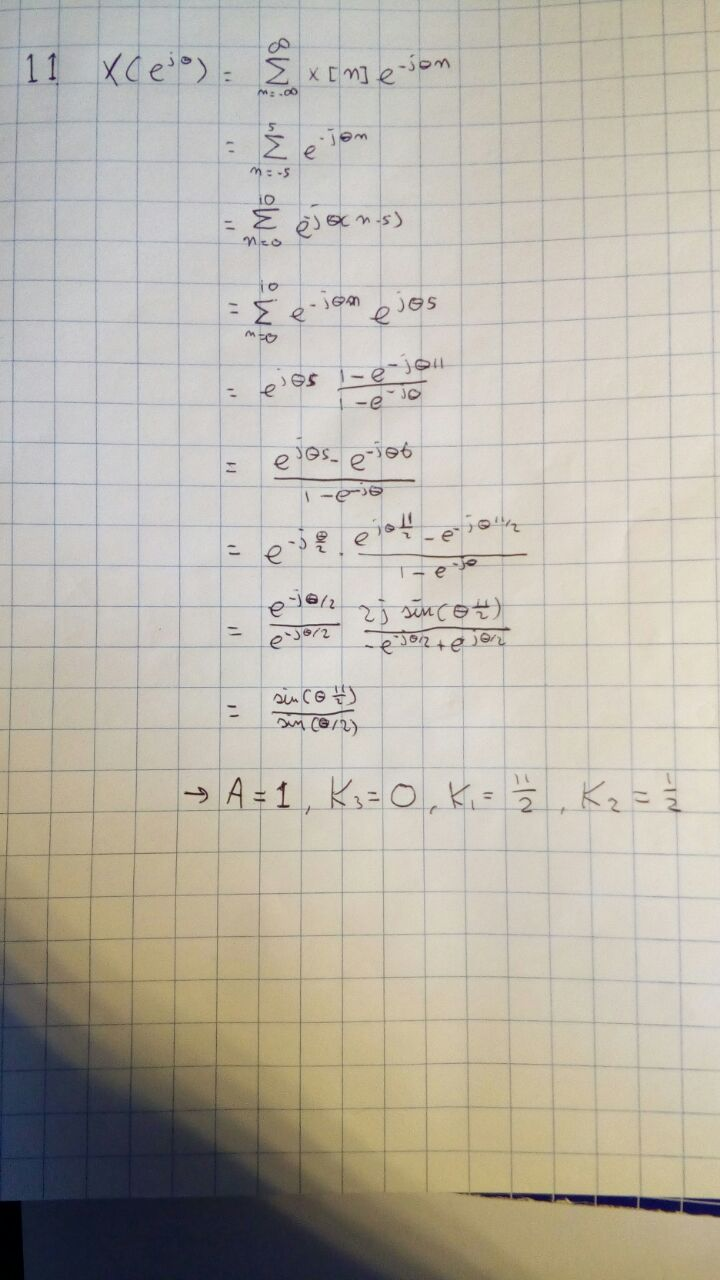 11 X(e^{jθ}) = \sum_{n=-∞}^{∞} x[n] e^{-jθn}
= \sum_{n=-5}^{5} e^{-jθn}
= \sum_{n=0}^{10} e^{-jθ(n-5)}
= \sum_{n=0}^{10} e^{-jθn} e^{jθ5}
= e^{jθ5} \frac{1-e^{-jθ11}}{1-e^{-jθ}}
= \frac{e^{jθ5} - e^{-jθ6}}{1-e^{-jθ}}
= e^{-j\frac{θ}{2}} · \frac{e^{jθ\frac{11}{2}} - e^{-jθ11/2}}{1-e^{-jθ}}
= \frac{e^{-jθ/2}}{e^{-jθ/2}} \frac{2j sin(θ\frac{11}{2})}{-e^{-jθ/2}+e^{jθ/2}}
= \frac{sin(θ\frac{11}{2})}{sin(θ/2)}
→ A = 1, K_3 = 0, K_1 = \frac{11}{2}, K_2 = \frac{1}{2}